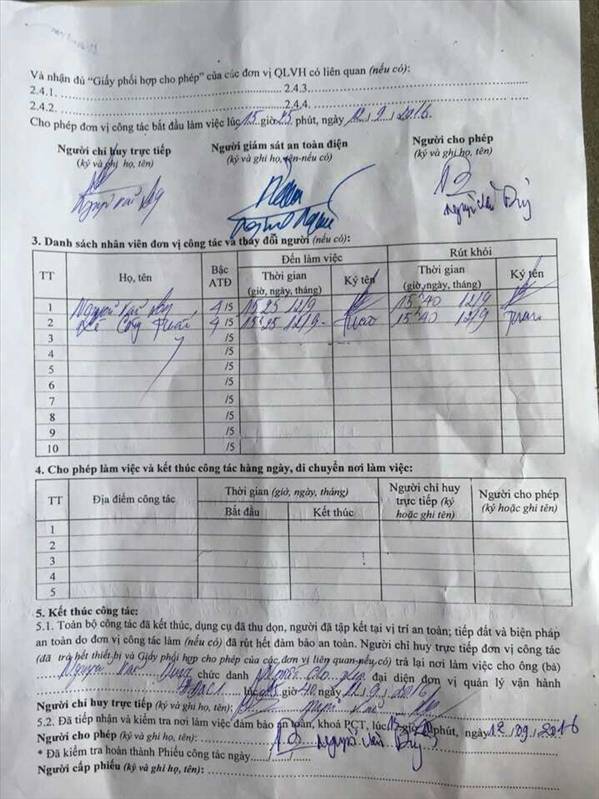 Và nhận đủ "Giấy phối hợp cho phép" của các đơn vị QLVH có liên quan (nếu có):
2.4.1. 2.4.3.
2.4.2. 2.4.4.
Cho phép đơn vị công tác bắt đầu làm việc lúc 15 giờ 25 phút, ngày 12/9/2016
Người chỉ huy trực tiếp Người giám sát an toàn điện Người cho phép
(ký và ghi họ, tên) (ký và ghi họ, tên-nếu có) (ký và ghi họ, tên)
3. Danh sách nhân viên đơn vị công tác và thay đổi người (nếu có):
TT Họ, tên Bậc ATĐ Đến làm việc Rút khỏi
Thời gian (giờ, ngày, tháng) Ký tên Thời gian (giờ, ngày, tháng) Ký tên
1 Nguyễn 4/5 15 25 12/9 15 40 12/9
2 Lê Công Tuấn 4/5 12/9 15 40 12/9
3 /5
4 /5
5 /5
6 /5
7 /5
8 /5
9 /5
10 /5
4. Cho phép làm việc và kết thúc công tác hàng ngày, di chuyển nơi làm việc:
TT Địa điểm công tác Thời gian (giờ, ngày, tháng) Người chỉ huy trực tiếp (ký hoặc ghi tên) Người cho phép (ký hoặc ghi tên)
Bắt đầu Kết thúc
1
2
3
4
5
5. Kết thúc công tác:
5.1. Toàn bộ công tác đã kết thúc, dụng cụ đã thu dọn, người đã tập kết tại vị trí an toàn; tiếp đất và biện pháp
an toàn do đơn vị công tác làm (nếu có) đã rút hết đảm bảo an toàn. Người chỉ huy trực tiếp đơn vị công tác
(đã trả hết thiết bị và Giấy phối hợp cho phép của các đơn vị liên quan-nếu có) trả lại nơi làm việc cho ông (bà)
Nguyễn Văn chức danh Người cho phép đại diện đơn vị quản lý vận hành
lúc 15 giờ 40, ngày 12/9/2016
Người chỉ huy trực tiếp (ký và ghi họ, tên): Nguyễn
5.2. Đã tiếp nhận và kiểm tra nơi làm việc đảm bảo an toàn, khoá PCT, lúc giờ phút, ngày 12/09/2016
Người cho phép (ký và ghi họ, tên): Nguyễn Văn
* Đã kiểm tra hoàn thành Phiếu công tác ngày
Người cấp phiếu (ký và ghi họ, tên):